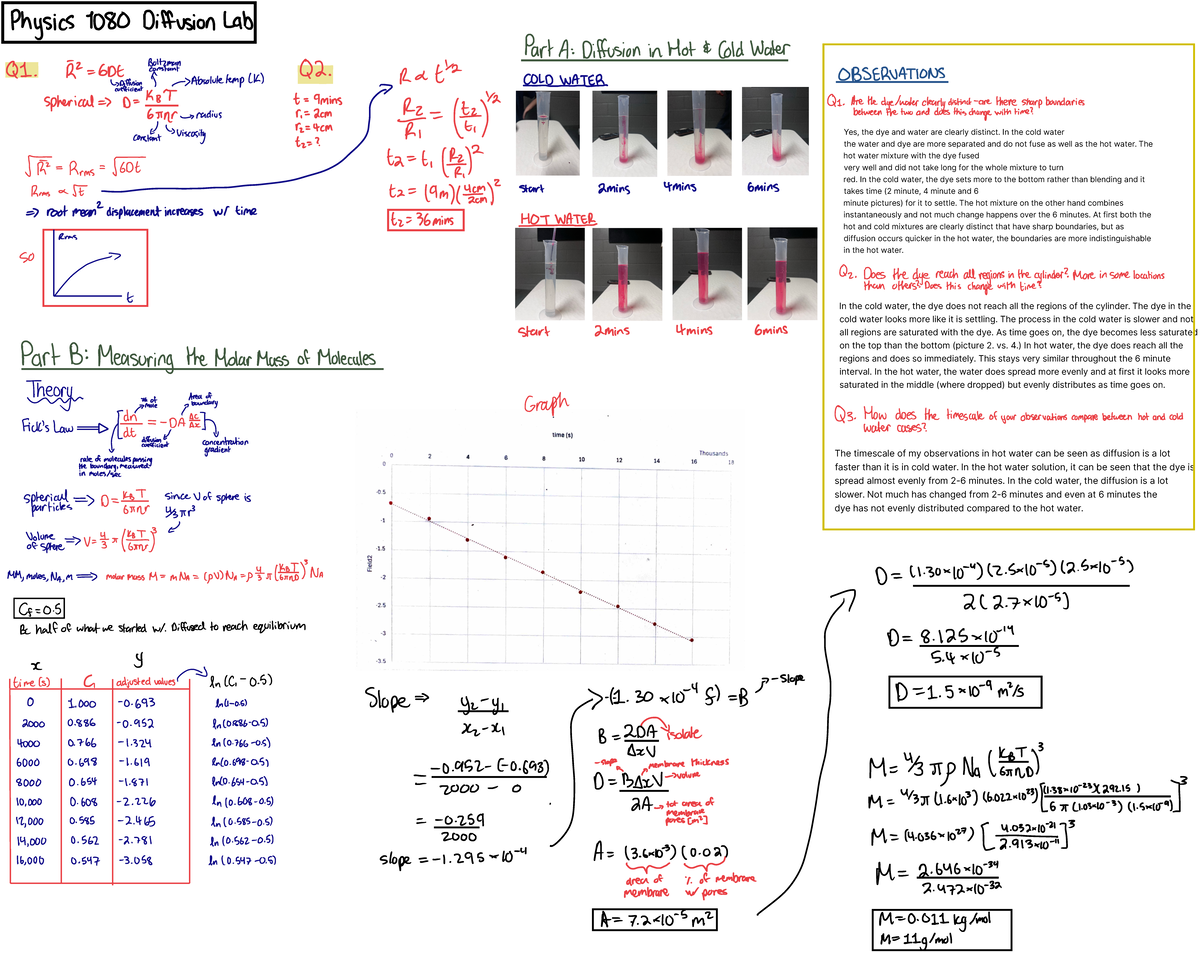 Physics 1080 Diffusion Lab
Q1.
R̄² = 6Dt
Diffusion coefficient
Boltzman constant
Absolute temp (K)
spherical => D = K_B T / 6πηr
radius
viscosity
constant
√R̄² = Rrms = √6Dt
Rrms ∝ √t
=> root mean² displacement increases w/ time
SO
Rrms
t
Q2.
t = 9mins
r₁ = 2cm
r₂ = 4cm
t₂ = ?
R ∝ t^1/2
R₂/R₁ = (t₂/t₁)^1/2
t₂ = t₁ (R₂/R₁)²
t₂ = (9m)(4cm/2cm)²
t₂ = 36mins
Part A: Diffusion in Hot & Cold Water
COLD WATER
start 2mins 4mins 6mins
HOT WATER
start 2mins 4mins 6mins
OBSERVATIONS
Q1. Are the dye/water clearly distinct - are there sharp boundaries
between the two and does this change with time?
Yes, the dye and water are clearly distinct. In the cold water
the water and dye are more separated and do not fuse as well as the hot water. The
hot water mixture with the dye fused
very well and did not take long for the whole mixture to turn
red. In the cold water, the dye sets more to the bottom rather than blending and it
takes time (2 minute, 4 minute and 6
minute pictures) for it to settle. The hot mixture on the other hand combines
instantaneously and not much change happens over the 6 minutes. At first both the
hot and cold mixtures are clearly distinct that have sharp boundaries, but as
diffusion occurs quicker in the hot water, the boundaries are more indistinguishable
in the hot water.
Q2. Does the dye reach all regions in the cylinder? More in some locations
than others? Does this change with time?
In the cold water, the dye does not reach all the regions of the cylinder. The dye in the
cold water looks more like it is settling. The process in the cold water is slower and not
all regions are saturated with the dye. As time goes on, the dye becomes less saturated
on the top than the bottom (picture 2. vs. 4.) In hot water, the dye does reach all the
regions and does so immediately. This stays very similar throughout the 6 minute
interval. In the hot water, the water does spread more evenly and at first it looks more
saturated in the middle (where dropped) but evenly distributes as time goes on.
Q3. How does the timescale of your observations compare between hot and cold
water cases?
The timescale of my observations in hot water can be seen as diffusion is a lot
faster than it is in cold water. In the hot water solution, it can be seen that the dye is
spread almost evenly from 2-6 minutes. In the cold water, the diffusion is a lot
slower. Not much has changed from 2-6 minutes and even at 6 minutes the
dye has not evenly distributed compared to the hot water.
Part B: Measuring the Molar Mass of Molecules
Theory
Fick's Law => [dn/dt = -DA Δc/Δx]
# of moles
Area of boundary
diffusion coefficient
concentration gradient
rate of molecules passing
the boundary, measured
in moles/sec
spherical particles => D = K_B T / 6πηr
since V of sphere is
4/3 πr³
Volume of sphere => V = 4/3 π (K_B T / 6πηr)³
MM, moles, NA, m => molar mass M = mNA = (ρV)NA = ρ 4/3 π (K_B T / 6πηD)³ NA
Cf = 0.5
Bc half of what we started w/. Diffused to reach equilibrium
x y
time (s) Ci adjusted values ln (Ci - 0.5)
0 1.000 -0.693 ln(1-0.5)
2000 0.886 -0.952 ln(0.886-0.5)
4000 0.766 -1.324 ln(0.766-0.5)
6000 0.698 -1.619 ln(0.698-0.5)
8000 0.654 -1.871 ln(0.654-0.5)
10,000 0.608 -2.226 ln(0.608-0.5)
12,000 0.585 -2.465 ln(0.585-0.5)
14,000 0.562 -2.781 ln(0.562-0.5)
16,000 0.547 -3.058 ln(0.547-0.5)
Graph
time (s)
Thousands
0 2 4 6 8 10 12 14 16 18
0
-0.5
-1
-1.5
-2
-2.5
-3
-3.5
Field2
Slope => y₂-y₁ / x₂-x₁
= -0.952 - (-0.693) / 2000 - 0
= -0.259 / 2000
slope = -1.295 × 10⁻⁴
-(1.30 × 10⁻⁴ s) = B
-slope
B = 2DA / ΔxV
isolate
D = BΔxV / 2A
-slope
membrane thickness
volume
tot area of
membrane
pores [m²]
A = (3.6×10⁻³)(0.02)
area of membrane
% of membrane w/ pores
A = 7.2×10⁻⁵ m²
D = (1.30×10⁻⁴)(2.5×10⁻⁵)(2.5×10⁻⁵) / 2(2.7×10⁻⁵)
D = 8.125×10⁻¹⁴ / 5.4×10⁻⁵
D = 1.5×10⁻⁹ m²/s
M = 4/3 πρ Na (K_B T / 6πηD)³
M = 4/3π (1.6×10³)(6.022×10²³)[(1.38×10⁻²³)(292.15) / 6π(1.03×10⁻³)(1.5×10⁻⁹)]³
M = (4.036×10²⁷) [4.032×10⁻²¹ / 2.913×10⁻¹¹]³
M = 2.646×10⁻³⁴ / 2.472×10⁻³²
M = 0.011 kg/mol
M = 11g/mol